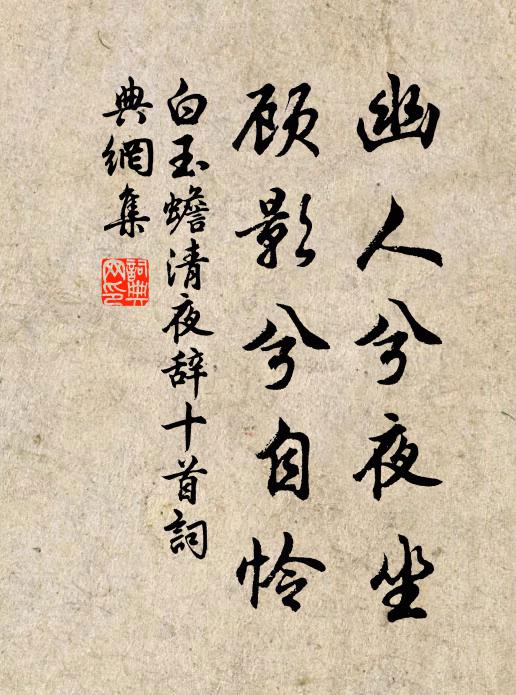 幽人兮夜坐
顾影兮自怜
白玉蟾清夜辞十首詞
典網集
詞典网印